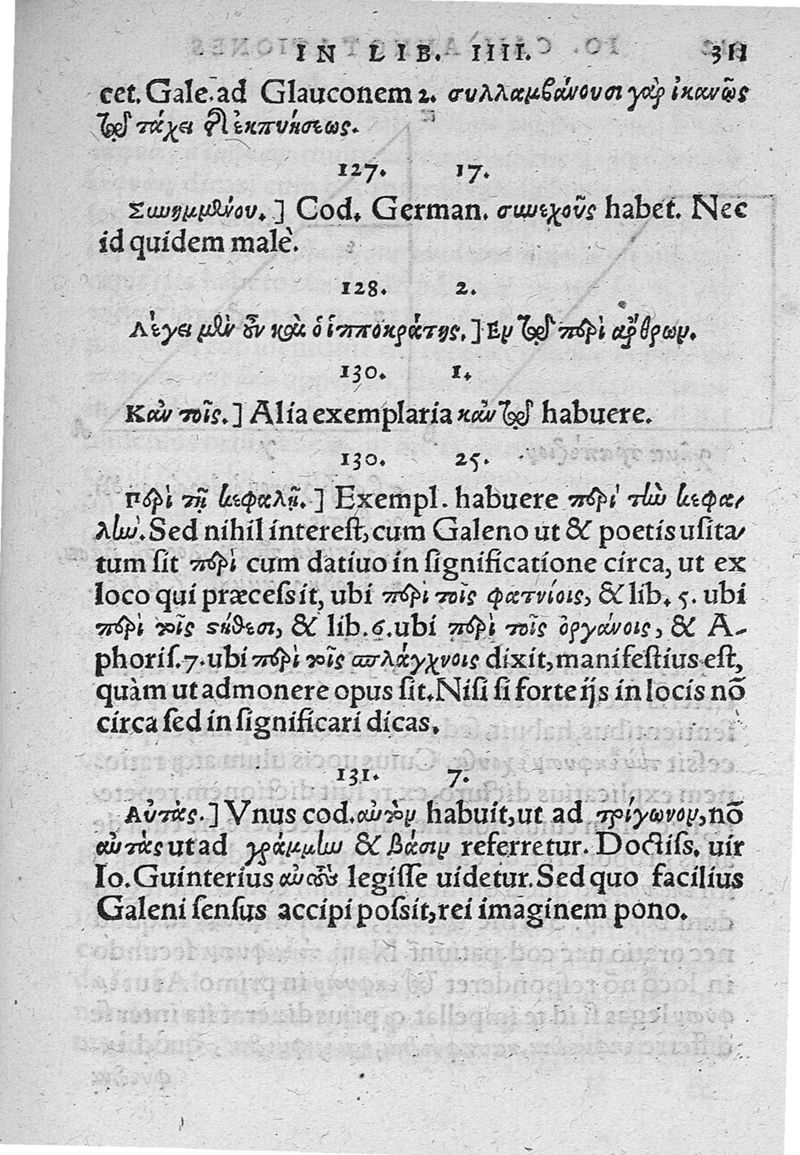 IN LIB. IIII. 311
cet. Gale. ad Glauconem 2. συλλαμβάνουσι γὰρ ἱκανῶς
τῷ τάχει τῆς ἐκπυήσεως.
127. 17.
Συνημμένου.] Cod. German. συνεχοῦς habet. Nec
id quidem malè.
128. 2.
Λέγει μὲν οὖν καὶ ὁ ἱπποκράτης.] Εν τῷ περὶ ἄρθρων.
130. 1.
Κἀν τοῖς.] Alia exemplaria κἀν τῷ habuere.
130. 25.
Περὶ τῇ κεφαλῇ.] Exempl. habuere περὶ τὴν κεφα/
λὴν. Sed nihil interest, cum Galeno ut & poetis usita/
tum sit περὶ cum datiuo in significatione circa, ut ex
loco qui præcessit, ubi περὶ τοῖς φατνίοις, & lib. 5. ubi
περὶ τοῖς στήθεσι, & lib. 6. ubi περὶ τοῖς ὀργάνοις, & A-
phoris. 7. ubi περὶ τοῖς σπλάγχνοις dixit, manifestius est,
quàm ut admonere opus sit. Nisi si forte ijs in locis nō
circa sed in significari dicas.
131. 7.
Αὐτὰς.] Vnus cod. αὐτὸν habuit, ut ad τρίγωνον, nō
αὐτὰς ut ad γραμμὴν & βάσιν referretur. Doctiss. uir
Io. Guinterius legisse uidetur. Sed quo facilius
Galeni sensus accipi possit, rei imaginem pono.